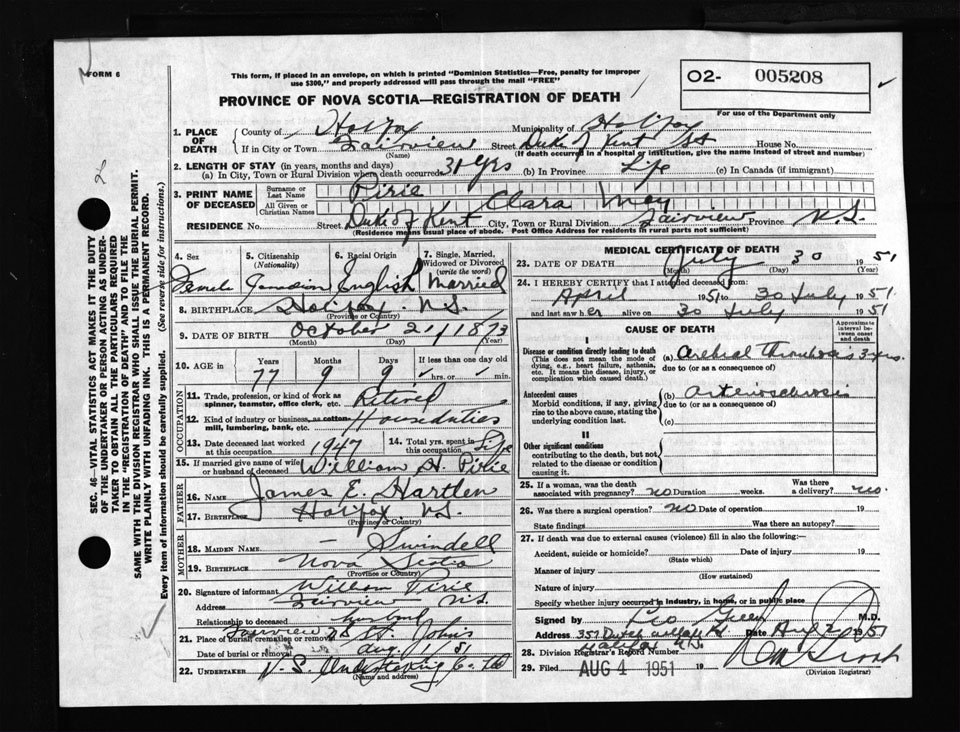 FORM 6
This form, if placed in an envelope, on which is printed "Dominion Statistics—Free, penalty for improper
use $300," and properly addressed will pass through the mail "FREE"
PROVINCE OF NOVA SCOTIA—REGISTRATION OF DEATH
O2- 005208
For use of the Department only
2
SEC. 46—VITAL STATISTICS ACT MAKES IT THE DUTY
OF THE UNDERTAKER OR PERSON ACTING AS UNDER-
TAKER TO OBTAIN ALL THE PARTICULARS REQUIRED
IN THE "REGISTRATION OF DEATH" AND TO FILE THE
SAME WITH THE DIVISION REGISTRAR WHO SHALL ISSUE THE BURIAL PERMIT.
WRITE PLAINLY WITH UNFADING INK. THIS IS A PERMANENT RECORD.
Every item of information should be carefully supplied. (See reverse side for instructions.)
1. PLACE OF DEATH County of Halifax Municipality of Halifax
If in City or Town Fairview Street Duke of Kent St House No.
(Name) (If death occurred in a hospital or institution, give the name instead of street and number)
2. LENGTH OF STAY (in years, months and days)
(a) In City, Town or Rural Division where death occurred 31 yrs (b) In Province Life (c) In Canada (if immigrant)
3. PRINT NAME OF DECEASED Surname or Last Name Pirie
All Given or Christian Names Clara May
RESIDENCE No. Street Duke of Kent City, Town or Rural Division Fairview Province N.S.
(Residence means usual place of abode. Post Office Address for residents of rural parts not sufficient)
4. Sex Female
5. Citizenship (Nationality) Canadian
6. Racial Origin English
7. Single, Married, Widowed or Divorced (write the word) Married
8. BIRTHPLACE Halifax N.S.
(Province or Country)
9. DATE OF BIRTH October 21 1873
(Month) (Day) (Year)
10. AGE in Years 77 Months 9 Days 9 If less than one day old hrs. or min.
OCCUPATION
11. Trade, profession, or kind of work as spinner, teamster, office clerk, etc. Retired
12. Kind of industry or business, as cotton-mill, lumbering, bank, etc. Houseduties
13. Date deceased last worked at this occupation 1947
14. Total yrs. spent in this occupation Life
15. If married give name of wife or husband of deceased William H. Pirie
FATHER
16. NAME James E. Hartlen
17. BIRTHPLACE Halifax N.S.
(Province or Country)
MOTHER
18. MAIDEN NAME — Swindell
19. BIRTHPLACE Nova Scotia
(Province or Country)
20. Signature of informant William Pirie
Address Fairview N.S.
Relationship to deceased husband
21. Place of burial, cremation or removal Fairview St. John's
Date of burial or removal Aug 1/51
22. UNDERTAKER N.S. Undertaking Co. Ltd
(Name and address)
MEDICAL CERTIFICATE OF DEATH
23. DATE OF DEATH July 30 1951
(Month) (Day) (Year)
24. I HEREBY CERTIFY that I attended deceased from:
April 1951 to 30 July 1951
and last saw her alive on 30 July 1951
CAUSE OF DEATH
Approximate interval between onset and death
I
Disease or condition directly leading to death
(This does not mean the mode of dying, e.g., heart failure, asthenia, etc. It means the disease, injury, or complication which caused death.)
(a) Cerebral Thrombosis 3 yrs.
due to (or as a consequence of)
Antecedent causes
Morbid conditions, if any, giving rise to the above cause, stating the underlying condition last.
(b) Arteriosclerosis
due to (or as a consequence of)
(c)
II
Other significant conditions
contributing to the death, but not related to the disease or condition causing it.
25. If a woman, was the death associated with pregnancy? no Duration weeks. Was there a delivery? no.
26. Was there a surgical operation? no Date of operation 19
State findings Was there an autopsy?
27. If death was due to external causes (violence) fill in also the following:—
Accident, suicide or homicide? Date of injury 19
(State which)
Manner of injury
(How sustained)
Nature of injury
Specify whether injury occurred in industry, in home, or in public place
Signed by M.D.
Address 357 Dutch Village Rd Date Aug 1951
Halifax N.S.
28. Division Registrar's Record Number
29. Filed AUG 4 1951 19
(Division Registrar)